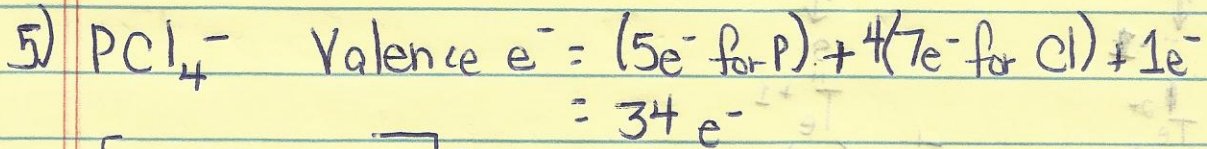 5) PCl₄⁻ Valence e⁻ = (5e⁻ for P) + 4(7e⁻ for Cl) + 1e⁻
= 34 e⁻